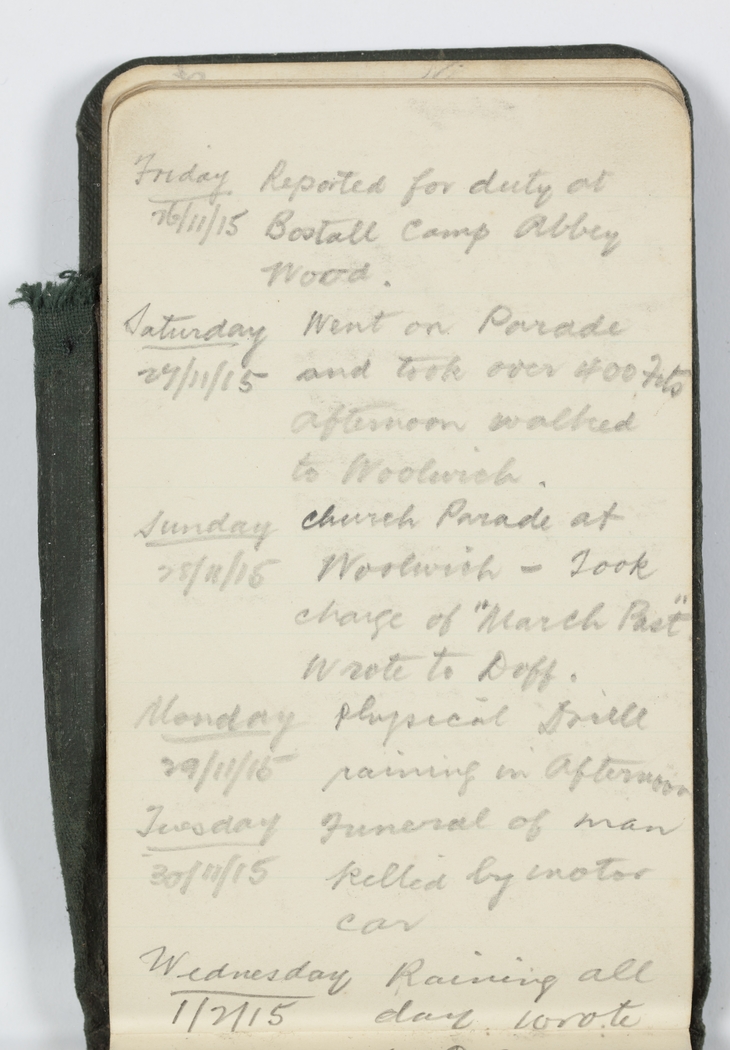 Friday Reported for duty at
26/11/15 Bostall Camp Abbey
Wood.
Saturday Went on Parade
27/11/15 and took over 400
afternoon walked
to Woolwich.
Sunday church Parade at
28/11/15 Woolwich - Took
charge of "March Past"
Wrote to Doff.
Monday Physical Drill
29/11/15 raining in Afternoon
Tuesday Funeral of man
30/11/15 killed by motor
car
Wednesday Raining all
1/2/15 day. wrote